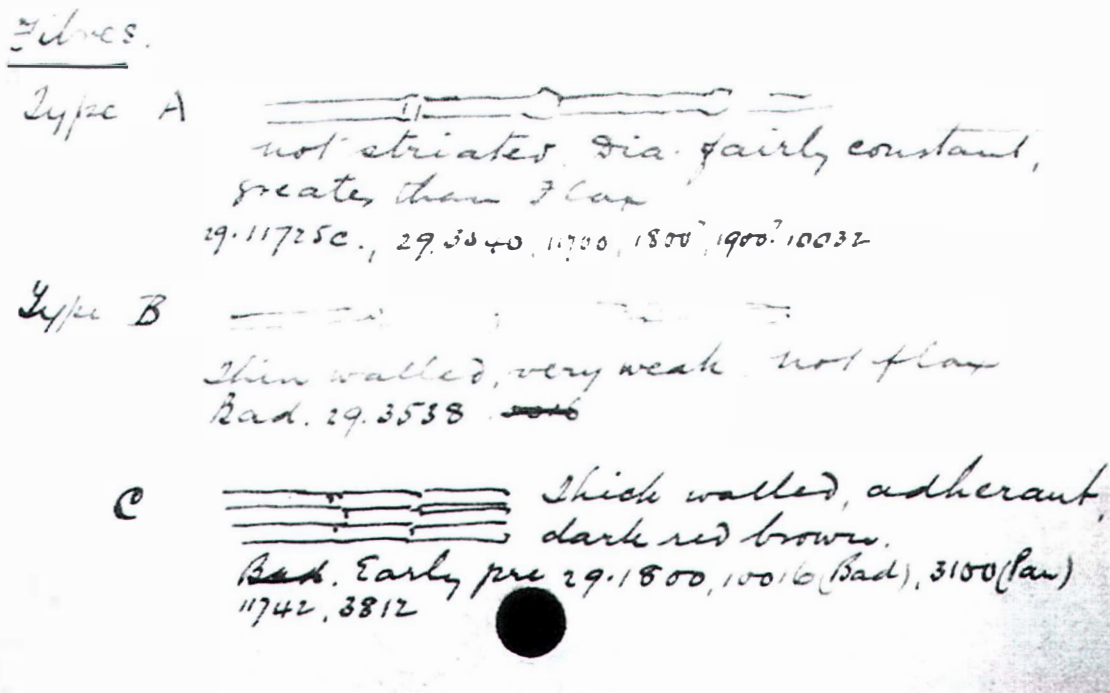 Fibres.
Type A
not striated, Dia. fairly constant,
greater than Flax
29.11725c., 29.3540, 11700, 1800?, 1900? 10032
Type B
Thin walled, very weak not flax
Bad. 29.3538
C Thick walled, adherant,
dark red brown.
Early pre 29.1800, 10016 (Bad), 3100 (Pan)
11742, 3812